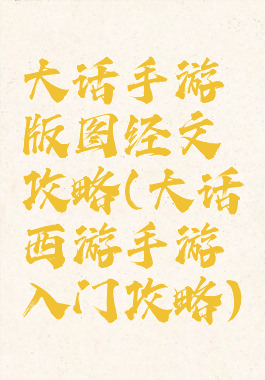 大话手游
版图经文
攻略(大话
西游手游
入门攻略)